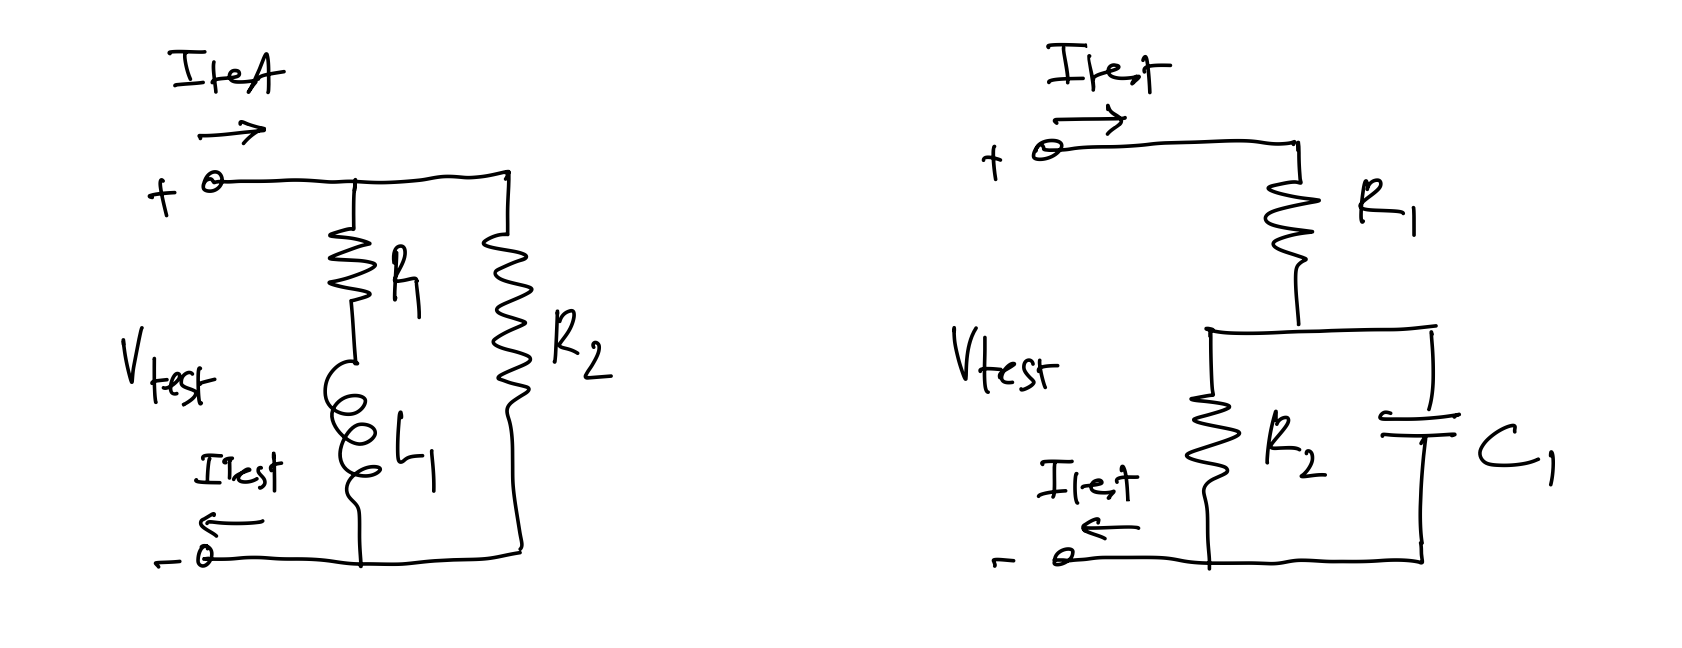 Itest
+
R1
R2
Vtest
L1
Itest
-
Itest
+
R1
Vtest
R2
C1
Itest
-